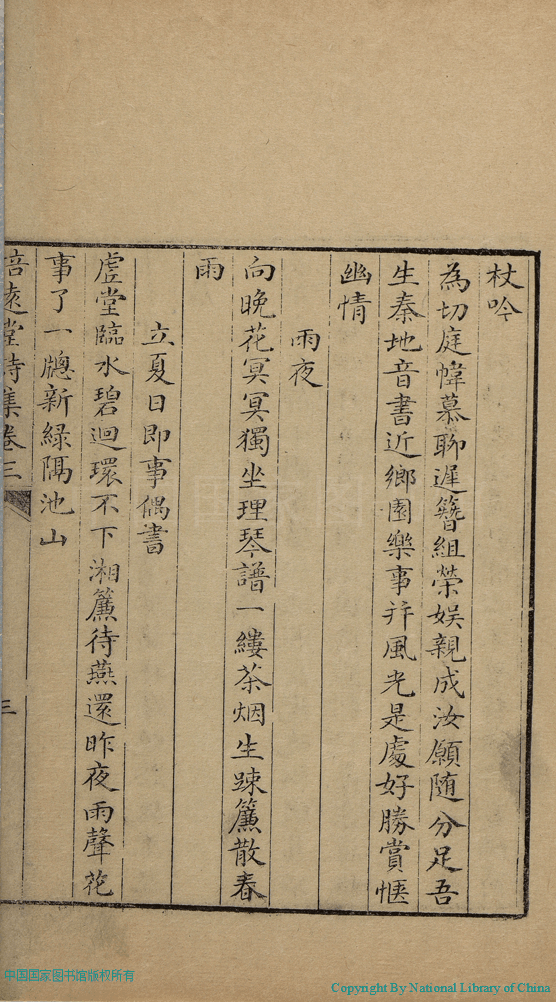 杖吟
為切庭幃慕聊遲簪組榮娛親成汝願随分足吾
生秦地音書近鄉園樂事并風光是處好勝賞愜
幽情
雨夜
向晚花冥冥獨坐理琴譜一縷茶烟生踈簾散春
雨
立夏日即事偶書
虛堂臨水碧迴環不下湘簾待燕還昨夜雨聲花
事了一牕新綠隔池山
培遠堂詩集卷三
三
中国国家图书馆版权所有
Copyright By National Library of China